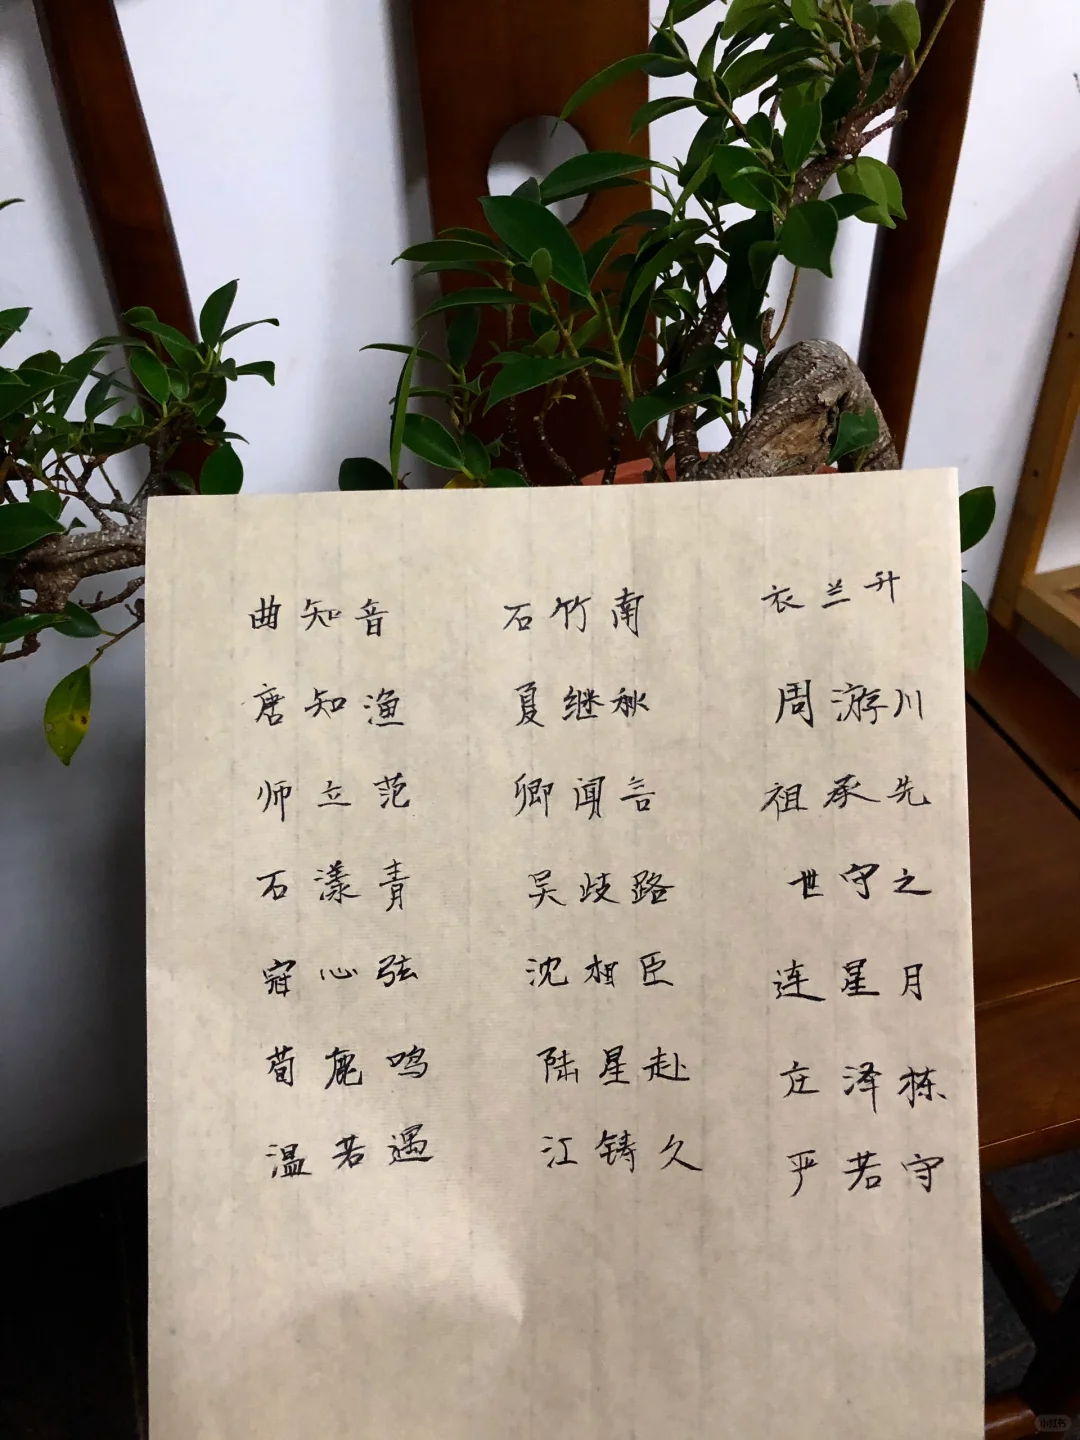 曲知音 石竹南 衣兰升
唐知渔 夏继秋 周游川
师立范 卿闻言 祖承先
石漾青 吴歧路 世守之
寇心弦 沈相臣 连星月
荀鹿鸣 陆星赴 庄泽栋
温若遇 江铸久 严若守
小红书